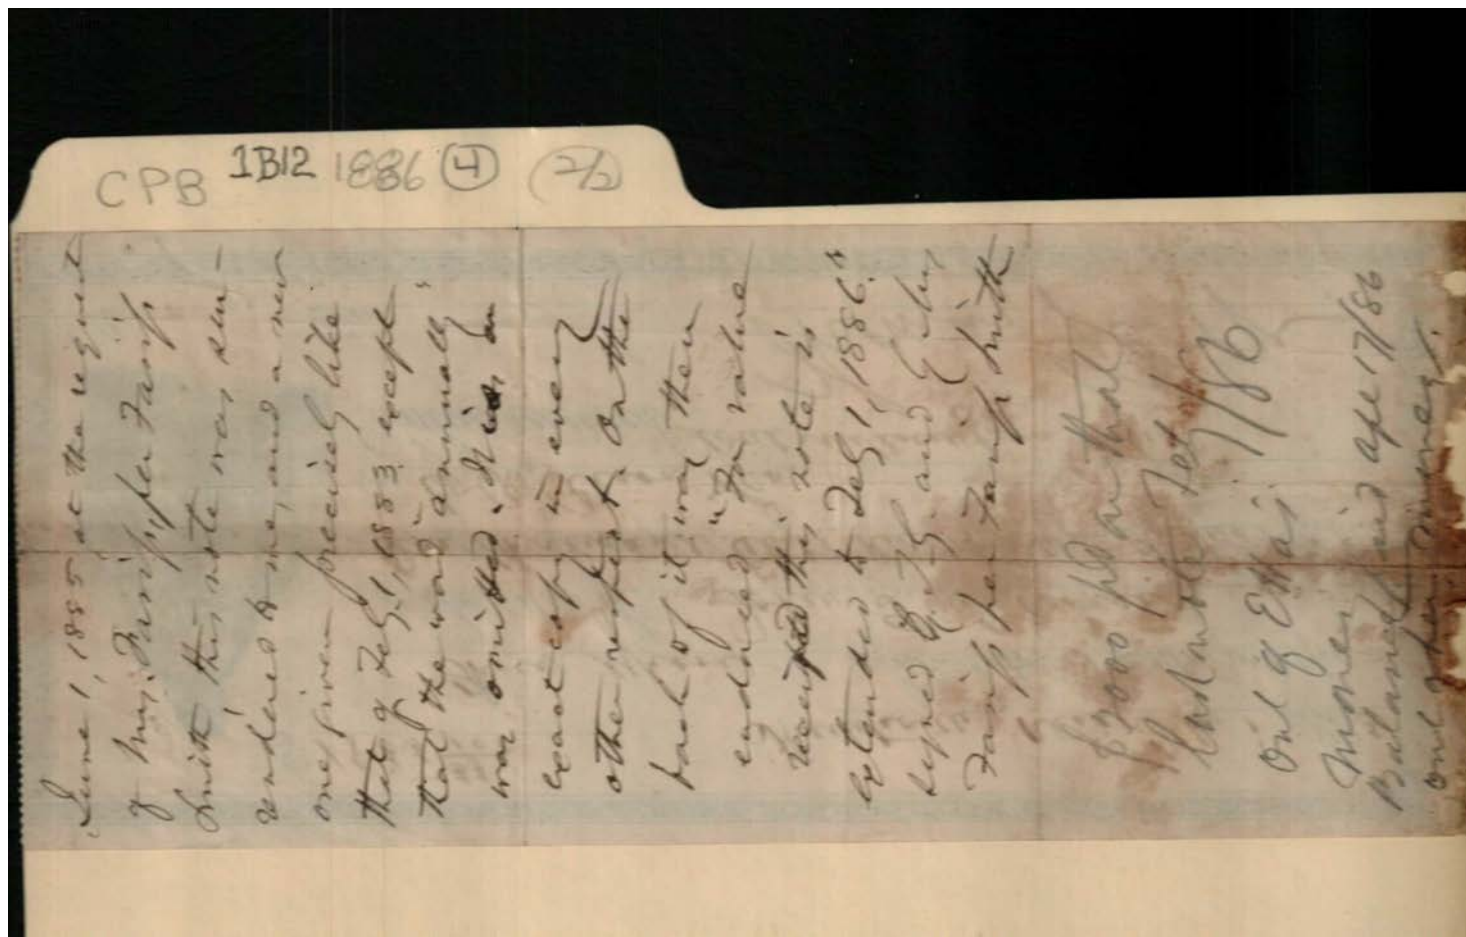 CPB 1B12 1886 4 (2/2)
June 1, 1885 at the request
of Mrs. per
Smith this note was sur-
rendered to me, and a new
one given precisely like
that of Feby. 1, 1883 except
that the word "annually"
was omitted. It is an
exact copy in every
other respect. On the
back of it was then
endorsed "For value
this note is
extended to Feby 1, 1886."
signed by and by
per Smith
$2000 pd on that
last note Feby
1/86
out of
money
Balance paid 17/86
out of her money.